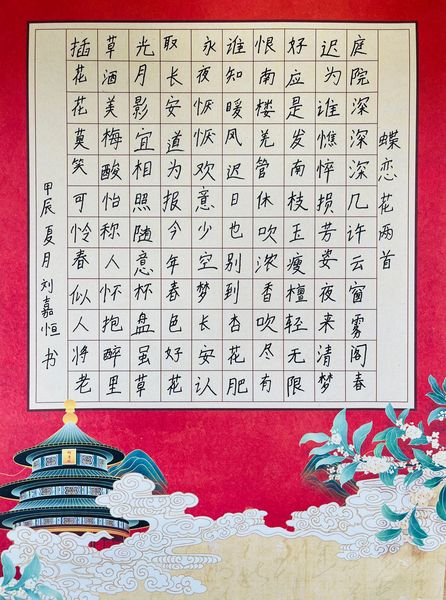 蝶恋花两首
庭院深深深几许云窗雾阁春
迟为谁憔悴损芳姿夜来清梦
好应是发南枝玉瘦檀轻无限
恨南楼羌管休吹浓香吹尽有
谁知暖风迟日也别到杏花肥
永夜恹恹欢意少空梦长安认
取长安道为报今年春色好花
光月影宜相照随意杯盘虽草
草酒美梅酸恰称人怀抱醉里
插花花莫笑可怜春似人将老
甲辰夏月刘嘉恒书